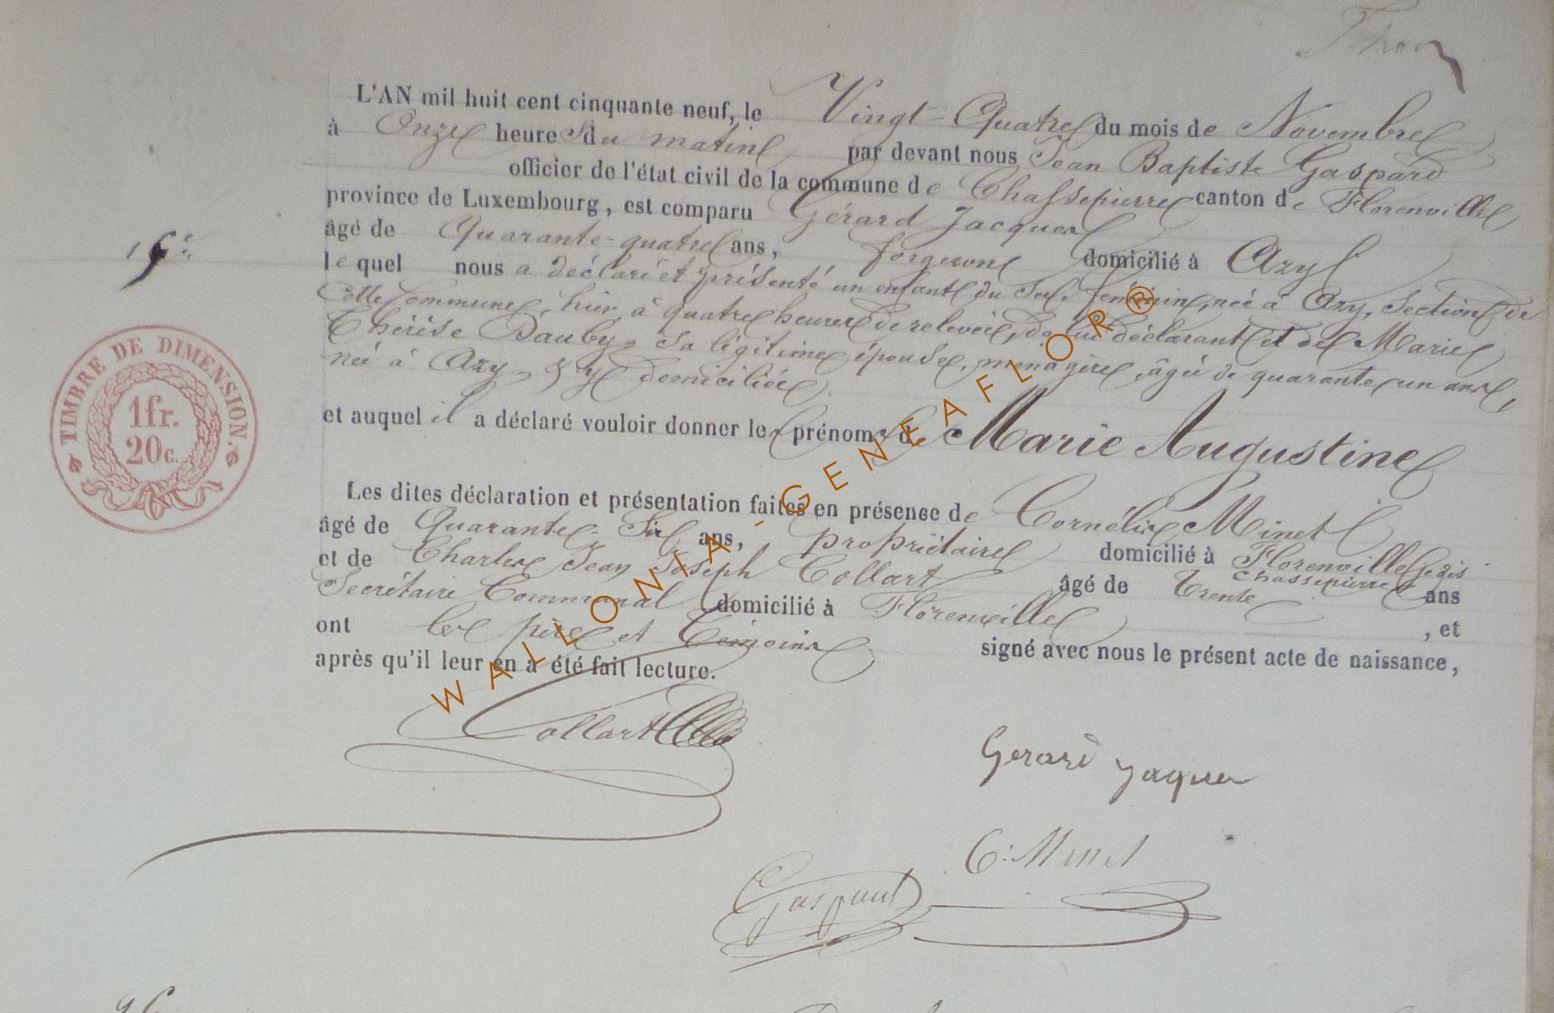 L'AN mil huit cent cinquante neuf, le Vingt-Quatre du mois de Novembre
à Onze heures du matin par devant nous Jean Baptiste Gaspard
officier de l'état civil de la commune de Chassepierre canton de Florenville
province de Luxembourg, est comparu Gérard Jacques
âgé de Quarante-quatre ans, forgeron domicilié à Azy
le quel nous a déclaré et présenté un enfant du sexe féminin, née à Azy, section de
cette commune, hier, à quatre heures de relevée, de lui déclarant et de Marie
Thérèse Dauby, sa légitime épouse, ménagère, âgée de quarante un ans,
née à Azy, & y domiciliée
et auquel il a déclaré vouloir donner les prénoms de Marie Augustine
Les dites déclaration et présentation faites en présence de Cornélis Minet
âgé de Quarante-Six ans, propriétaire domicilié à Florenville
Chassepierre
et de Charles Jean Joseph Collart âgé de Trente ans
Secrétaire Communal domicilié à Florenville, et
ont les père et témoins signé avec nous le présent acte de naissance,
après qu'il leur en a été fait lecture.
Collart
Gerard Jaques
C: Minet
Gaspard
TIMBRE DE DIMENSION.
1fr.
20c.
WALLONIA - GENEAFLOR®